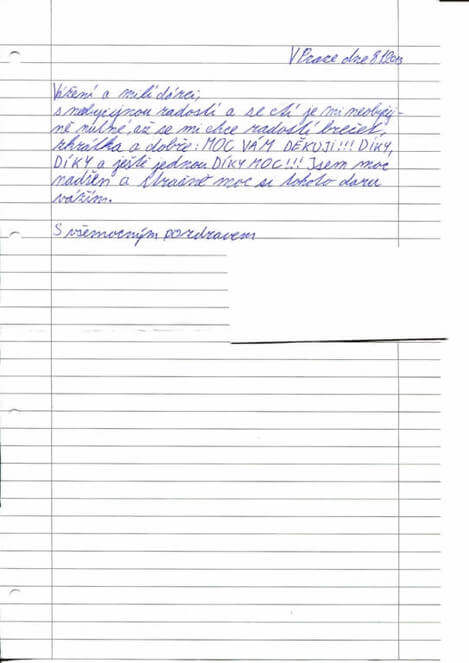 V Praze dne
Vážení a milí dárci,
s radostí a se ctí je mi neobyčej-
ně nutné, až se mi chce radostí brečet,
zkrátka a dobře: MOC VÁM DĚKUJI!!! DÍKY,
DÍKY a ještě jednou DÍKY MOC!!! Jsem moc
nadšen a strašně moc si tohoto daru
vážím.
S všemocným pozdravem